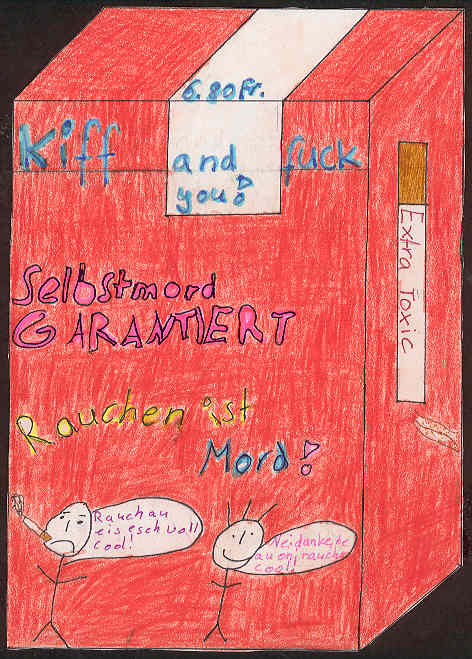 6.80 Fr.
Kiff and fuck
you!
Selbstmord
GARANTIERT
Rauchen ist
Mord!
Extra Toxic
Rauch au
eis esch voll
cool!
Nei danke,
au oni rauche
cool!